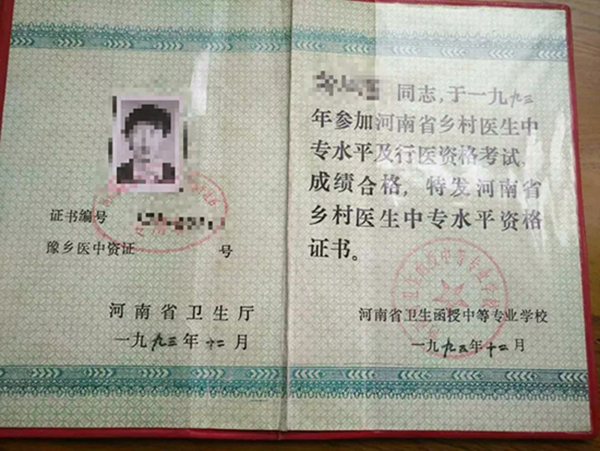 证书编号
豫乡医中资证 号
河南省卫生厅
一九九三年十二月
同志，于一九九三
年参加河南省乡村医生中
专水平及行医资格考试、
成绩合格，特发河南省
乡村医生中专水平资格
证书。
河南省卫生函授中等专业学校
一九九三年十二月